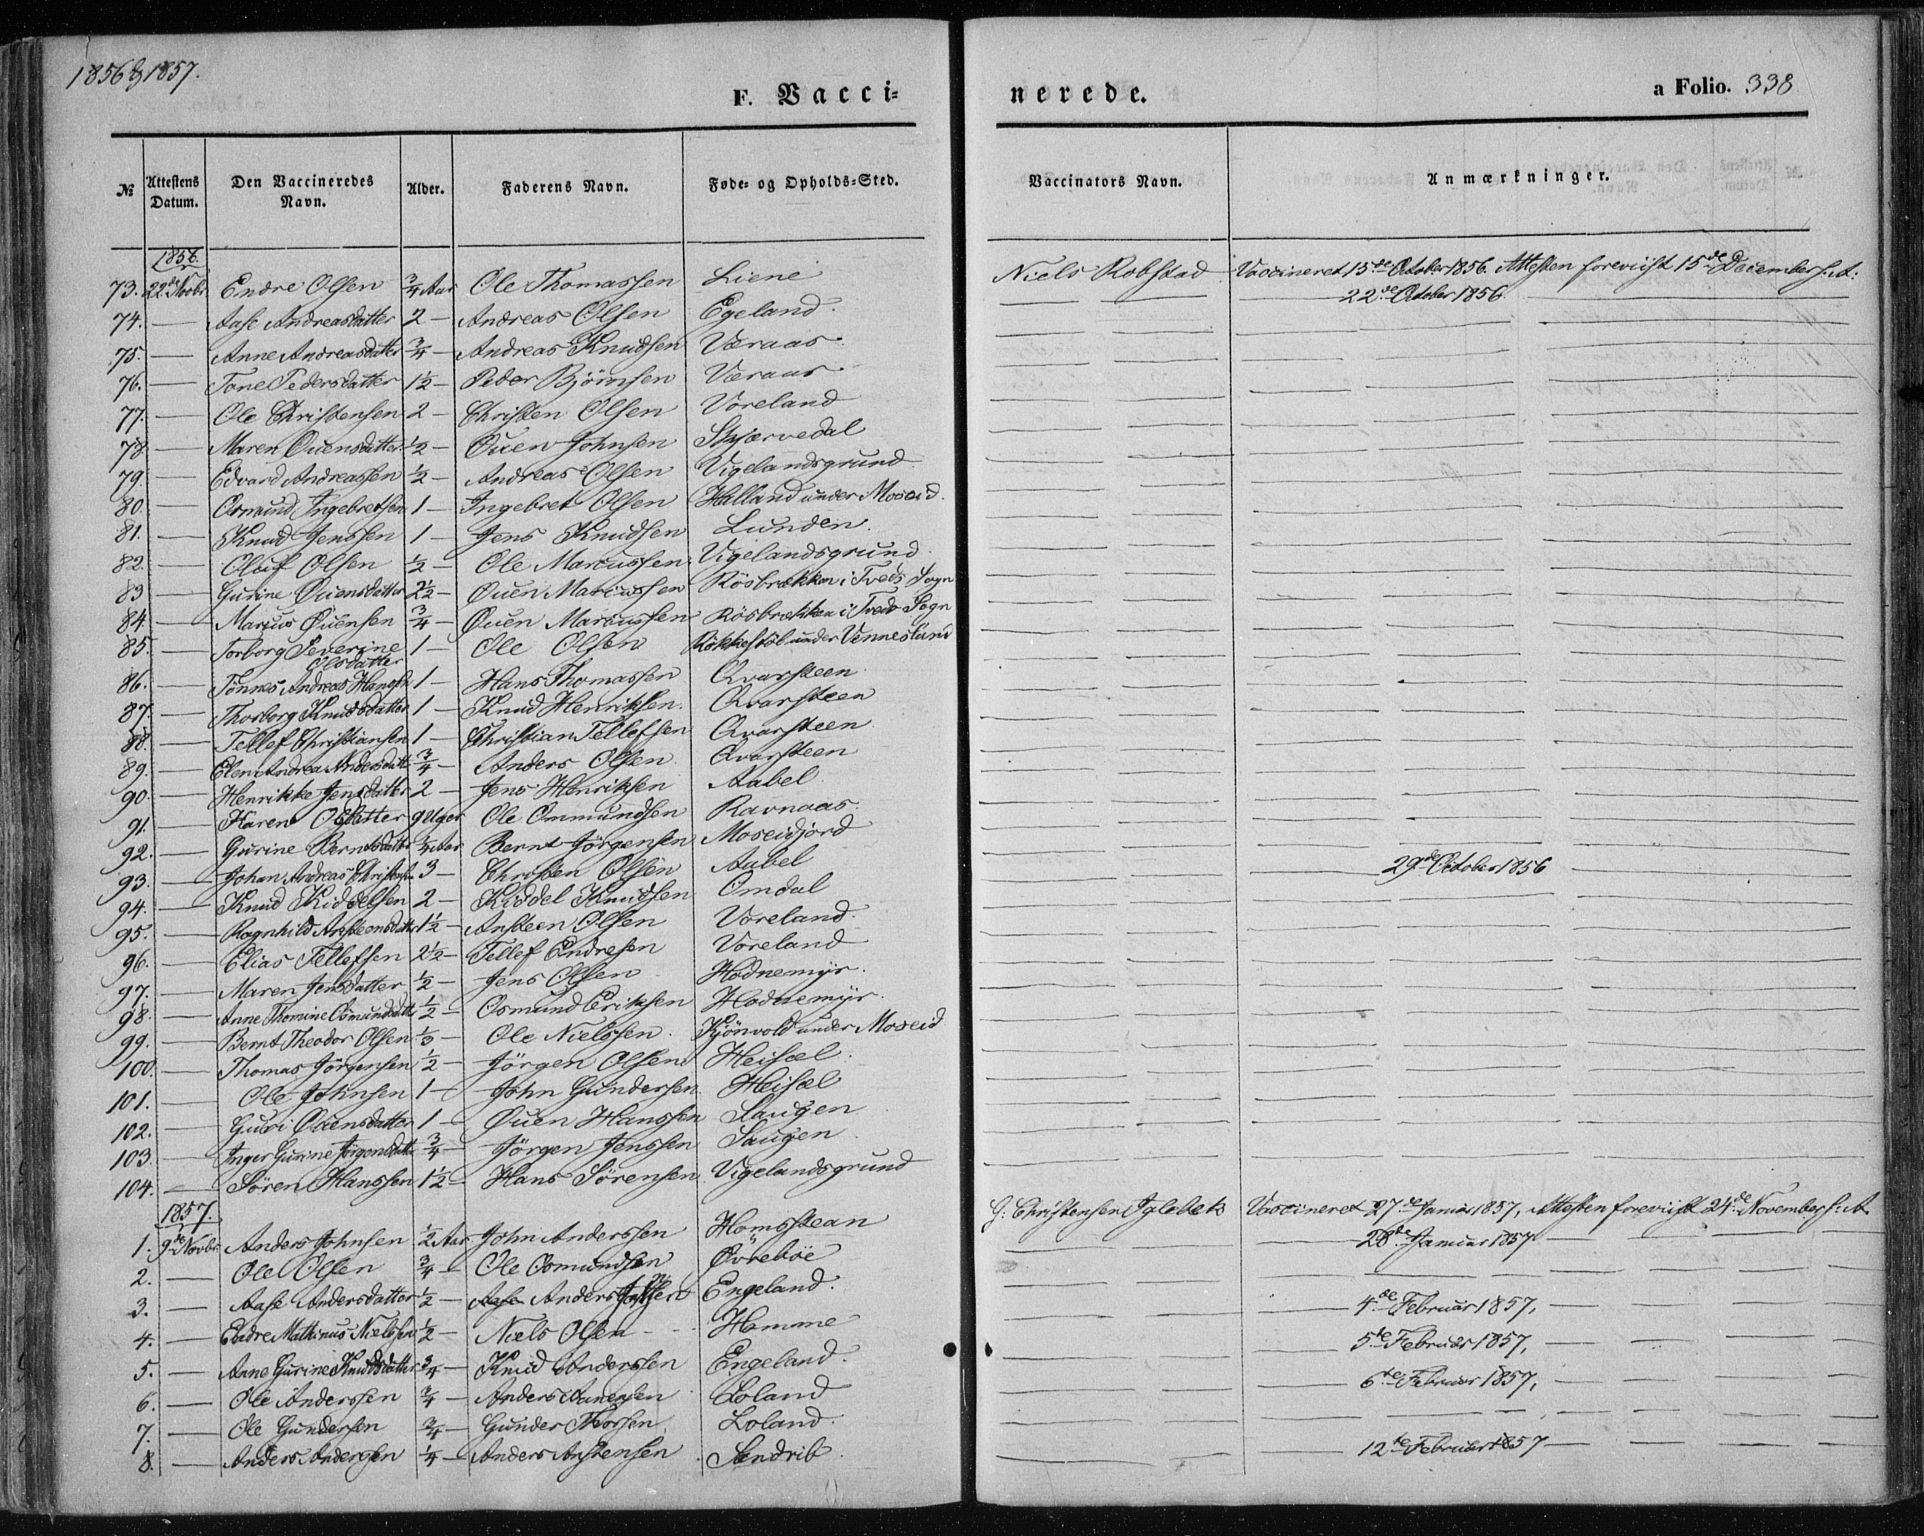 1856 & 1857.
F. Vacci-
nerede.
a Folio. 338
№
Attestens Datum.
Den Vaccineredes Navn.
Alder.
Faderens Navn.
Føde- og Opholds-Sted.
Vaccinators Navn.
Anmærkninger.
1856.
73. 22de Novbr Endre Olsen 3/4 Aar Ole Thomassen Liene Niels Robstad Vaccineret 15de October 1856. Attesten foreviist 15de December s: A:
74. — Aase Andreasdatter 2 — Andreas Olsen Egeland. 22de October 1856.
75. — Anne Andreasdatter 3/4 — Andreas Knudsen Væraas
76. — Tone Pedersdatter 1 1/2 — Peder Björnsen Væraas
77. — Ole Christensen 2 — Christen Olsen Voreland
78 — Maren Ouensdatter 1/2 — Ouen Johnsen Skjærvedal
79. — Edvard Andreassen 1/2 — Andreas Olsen Vigelandsgrund
80. — Osmund Ingebretsen 1 — Ingebret Olsen Halland under Moseid.
81. — Knud Jenssen 1 — Jens Knudsen Lunden.
82. — Oluf Olsen 1/2 — Ole Marcussen Vigelandsgrund
83 — Gurine Ouensdatter 2 1/2 — Ouen Marcussen Rösbrækken i Tveds Sogn
84. — Marius Ouensen 3/4 — Ouen Marcussen Rösbrækken i Tveds Sogn
85. — Torborg Severine Olsdatter 1 — Ole Olsen Rökkestöl under Venneslund
86. — Tönnes Andreas Hanssen 1 — Hans Thomassen Qvarsteen
87. — Thorborg Knudsdatter 1 — Knud Henriksen. Qvarsteen
88. — Tellef Christiansen 1 — Christian Tellefsen Qvarsteen
89. — Elen Andrea Andersdatt: 3/4 — Anders Olsen Qvarsteen
90. — Henrikke Jensdatter 2 — Jens Henriksen Aabel
91. — Karen Olsdatter 9 Uger Ole Ommundsen Ravnaas
92. — Gurine Berntsdatter 3/4 Aar Bernt Jörgensen Moseidjord
93. — Johan Andreas Christens: 3 — Christen Olsen Aabel 29de October 1856
94. — Knud Kiddelsen 2 — Kiddel Knudsen Omdal
95. — Ragnhild Ansteensdatter 1 1/2 — Ansteen Olsen Voreland.
96. — Elias Tellefsen 2 1/2 — Tellef Endresen Voreland
97. — Maren Jensdatter 1/2 — Jens Olsen Hodnemyr.
98. — Anne Thomine Osmundsdatt: 1/2 — Osmund Eriksen Hodnemyr.
99. — Bernt Theodor Olsen 1/3 — Ole Nielssen. Kjönvold under Moseid
100. — Thomas Jörgensen 1/2 — Jörgen Olsen Heisæl.
101. — Ole Johnsen 1 — John Gundersen Heisæl
102. — Guri Ouensdatter 1 — Ouen Hanssen Saugen
103. — Inger Gurine Jörgensdatt: 3/4 — Jörgen Jenssen Saugen
104. — Sören Hanssen 1 1/2 — Hans Sörensen Vigelandsgrund
1857.
1. 9de Novbr. Anders Johnsen 1/2 Aar John Anderssen Homstean G. Christensen Iglebek Vaccineret 27de Januar 1857, Attesten foreviist 24de November s: A
2. — Ole Olsen 3/4 — Ole Osmundsen Övreböe 28de Januar 1857
3. — Aase Andersdatter 1/2 — Anders Engeland.
4. — Endre Mathinus Nielssen 1/2 — Niels Olsen Homme 4de Februar 1857,
5. — Anne Gurine Knudsdatter 3/4 — Knud Anderssen Engeland. 5te Februar 1857,
6. — Ole Anderssen 3/4 — Anders Aanensen Loland 6te Februar 1857,
7. — Ole Gundersen 3/4 — Gunder Thorsen Loland.
8. — Anders Andersen 1/4 — Anders Anstensen Sandrib 12te Februar 1857